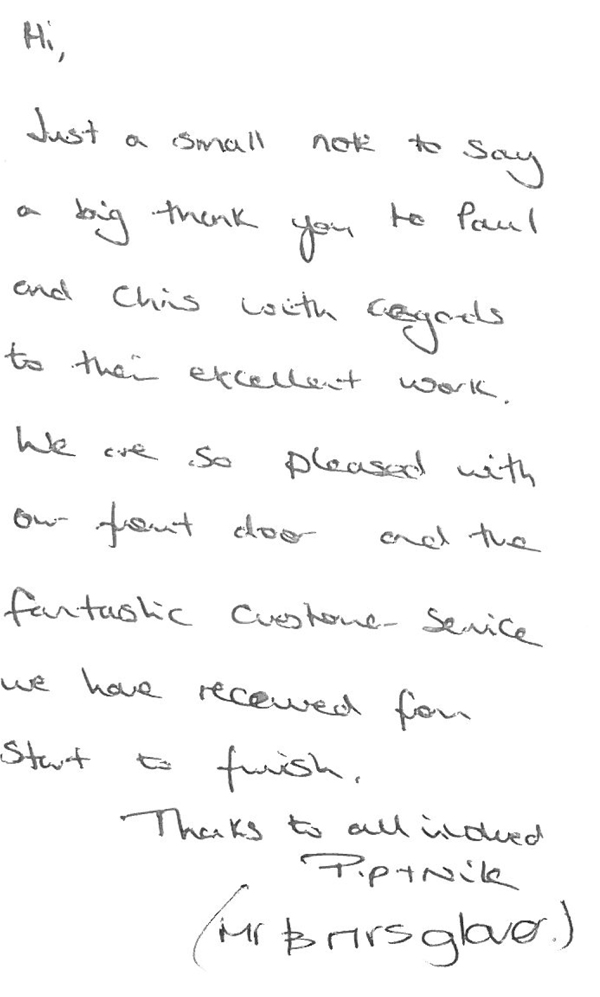 Hi,
Just a small note to say
a big thank you to Paul
and Chris with regards
to their excellent work.
We are so pleased with
our front door and the
fantastic customer service
we have received from
start to finish.
Thanks to all involved
Pip + Nik
(Mr & Mrs glover.)